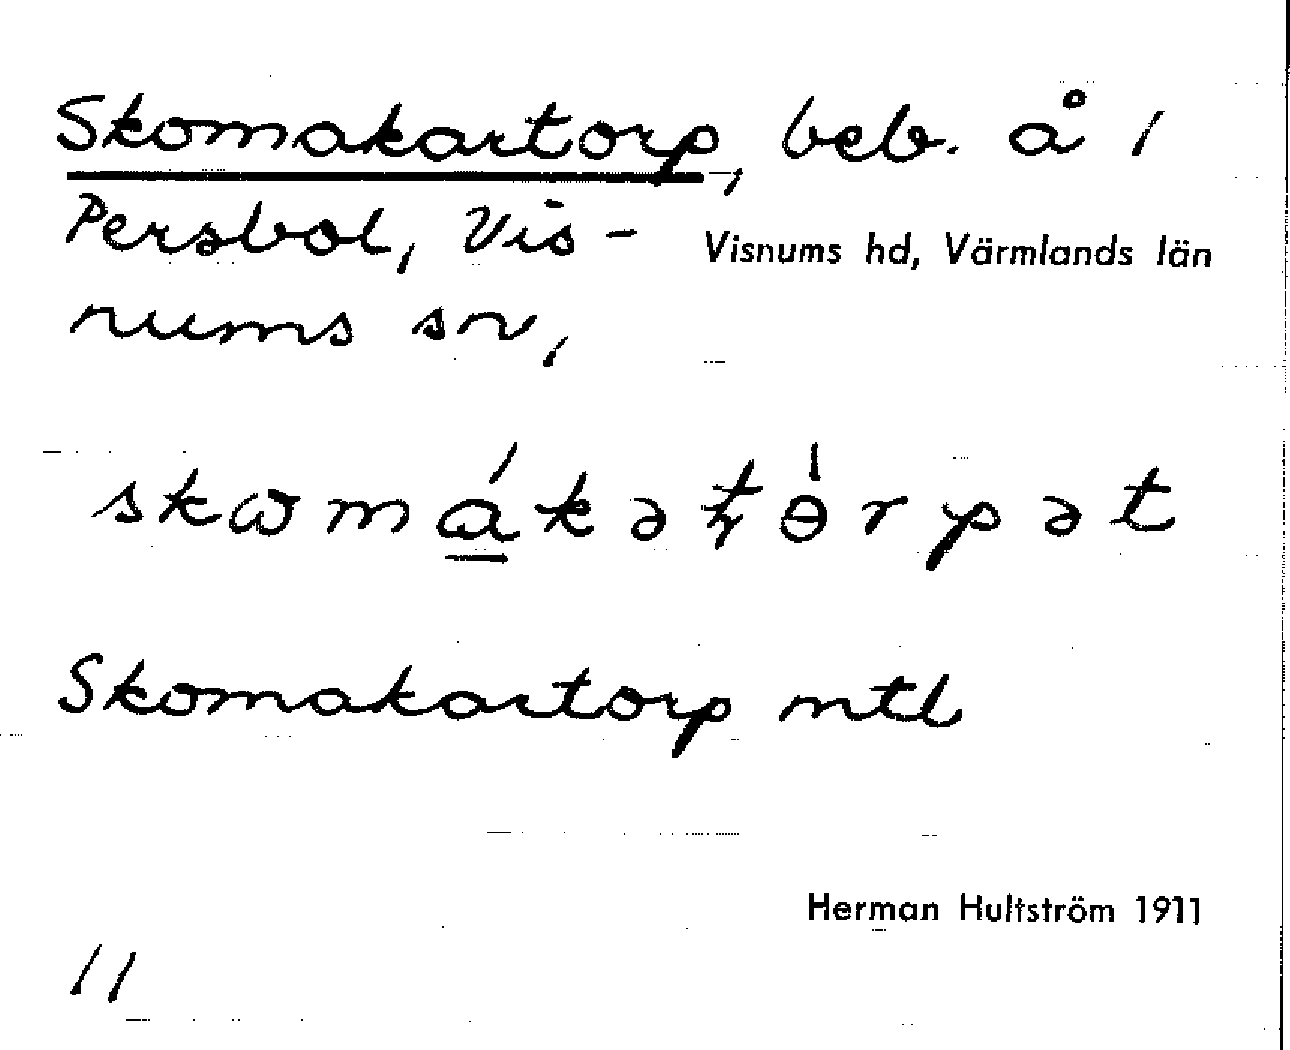 Skomakartorp, beb. å 1
Persbol, Vis-
nums sn,
Visnums hd, Värmlands län
skωmákəʈɵ́rpət
Skomakartorp mtl
Herman Hultström 1911
11